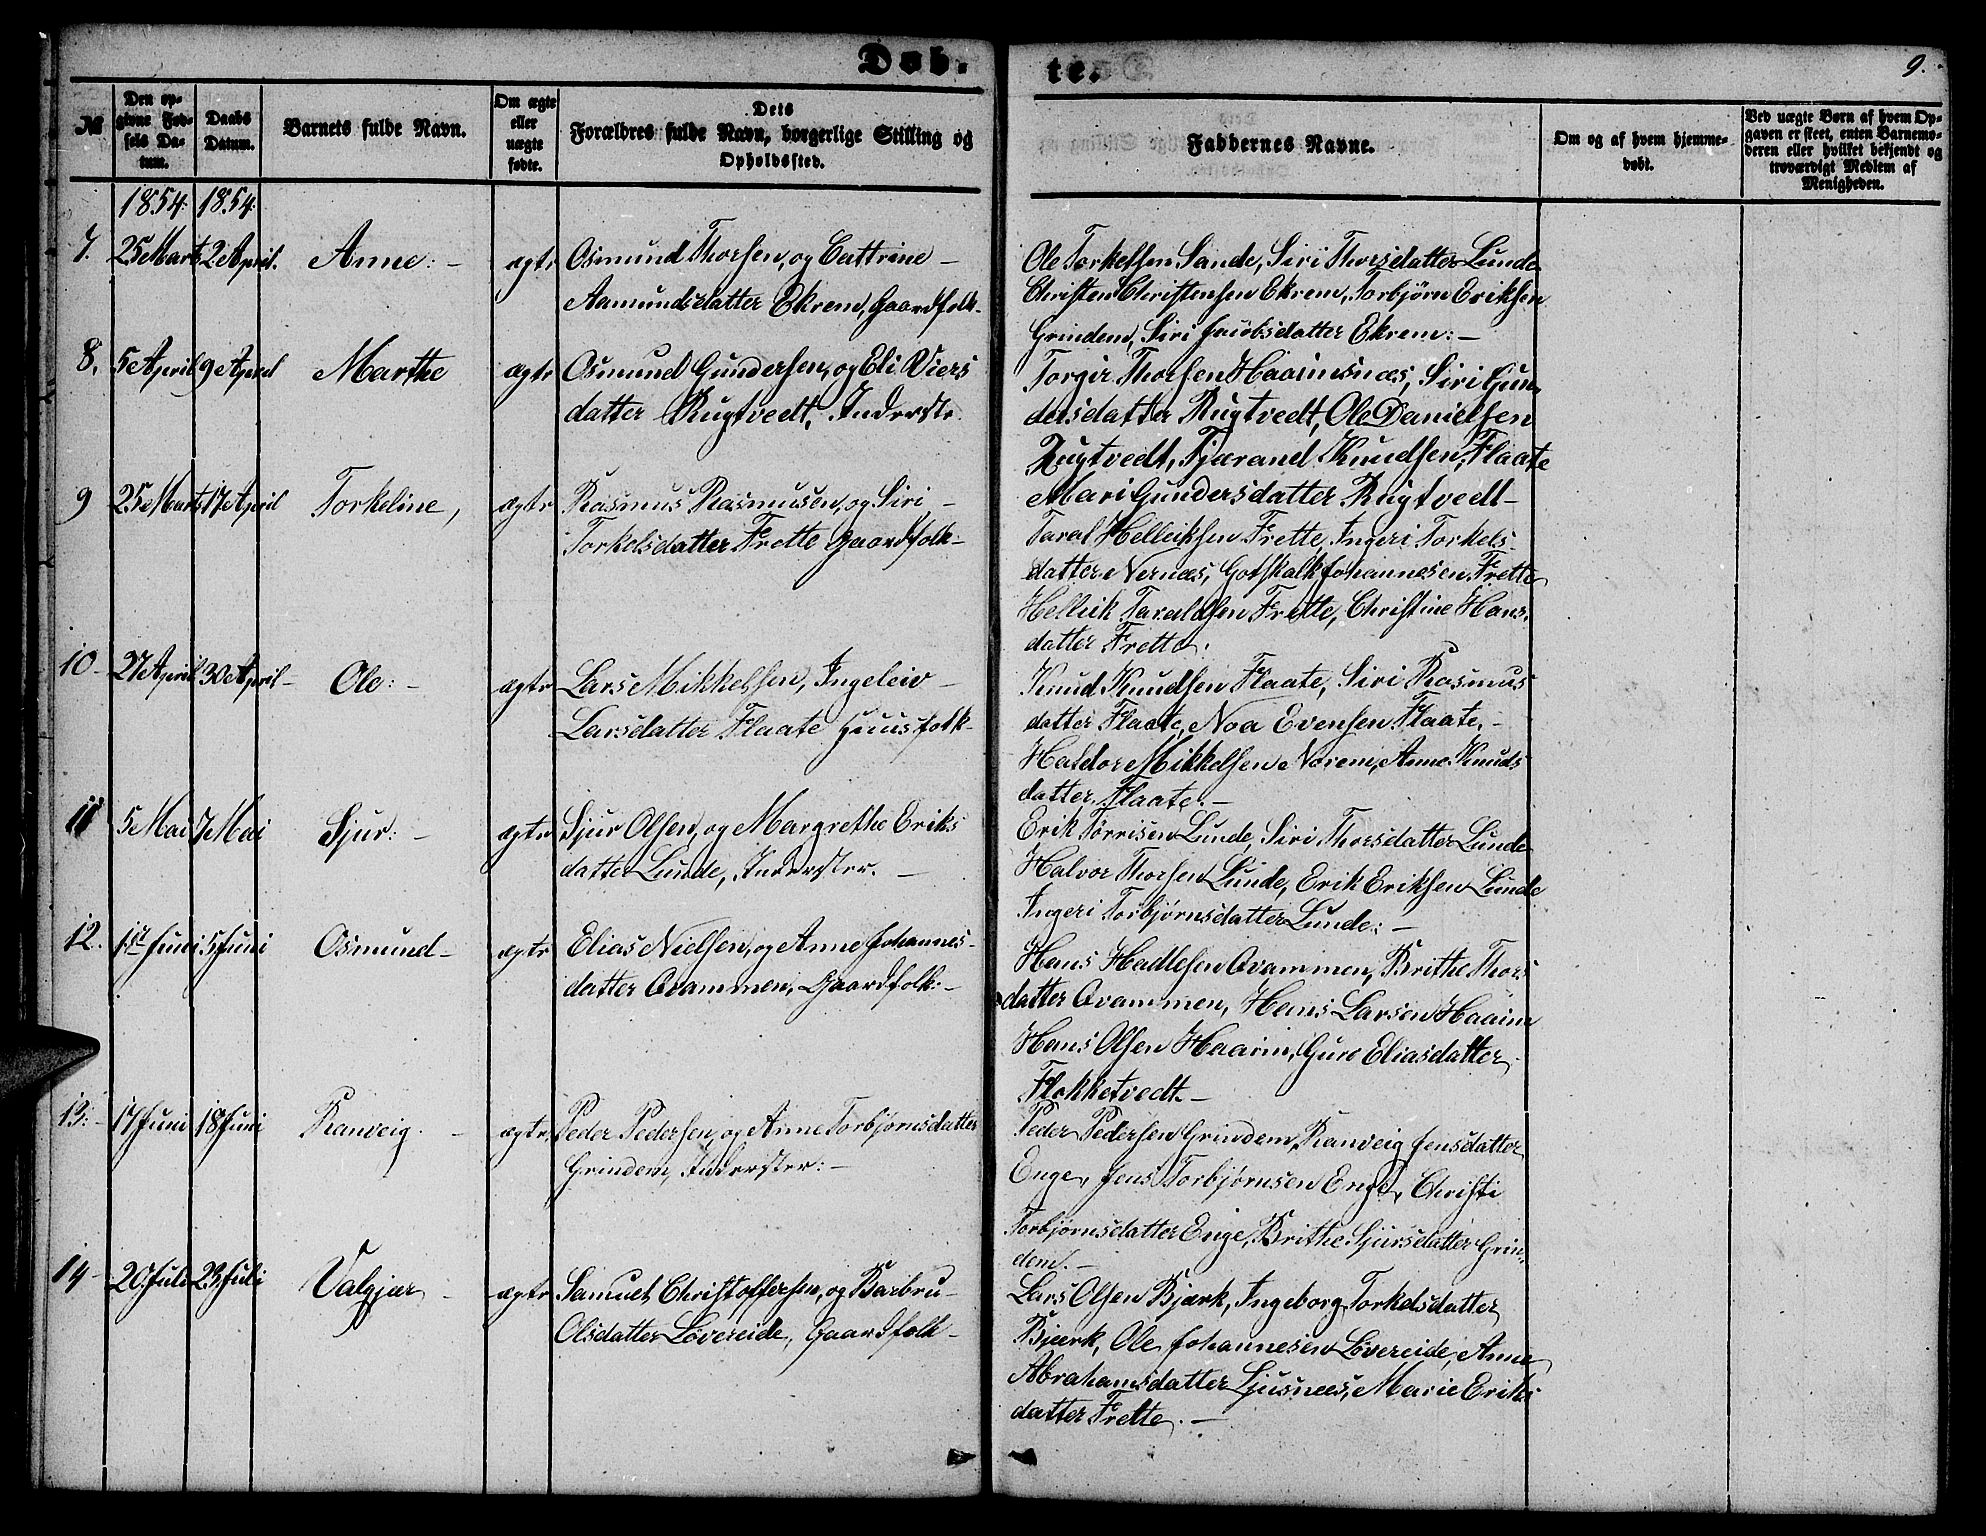 Døb.
te.
9.
No
Den op-
givne Fød-
sels Da-
tum.
Daabs
Datum.
Barnets fulde Navn.
Om ægte
eller
uægte
fødte.
Dets
Forældres fulde Navn, borgerlige Stilling og
Opholdssted.
Faddernes Navne.
Om og af hvem hjemme-
døbt.
Ved uægte Børn af hvem Op-
gaven er skeet, enten Barnemo-
deren eller hvilket bekjendt og
troværdigt Medlem af
Menigheden.
1854. 1854.
7. 25 Marts 2 April. Anne: - ægte Osmund Thorsen, og Cattrine -
Aamundsdatter Ekrem, Gaardfolk.
Ole Torkelsen Sande, Siri Thorsdatter Lunde
Christen Christensen Ekrem, Torbjørn Eriksen
Grindem, Siri Jacobsdatter Ekrem: -
8. 5 April 9 April Marthe ægte Osmund Gundersen, og Eli Viers
datter Rugtvedt, Inderste.
Torgir Thorsen Haaimsnæs, Siri Gun-
dersdatter Rugtvedt, Ole Danielsen
Rugtvedt, Tjærand Knudsen, Flaate
Mari Gundersdatter Rugtvedt -
9 25 Marts 17 April Torkeline, ægte Rasmus Rasmusen, og Siri -
Torkelsdatter Frette Gaardfolk-
Taral Helleiksen Frette, Ingeri Torkels-
datter Nernæs, Gotskalk Johannesen Frette
Helleik Taraldsen Frette, Christine Hans-
datter Frette.
10 - 27 April 30 April - Ole: - ægte Lars Mikkelsen, Ingeleiv -
Larsdatter Flaate Huusfolk -
Knud Knudsen Flaate, Siri Rasmus
datter Flaate, Noa Evensen Flaate. -
Haldor Mikkelsen Norem, Anne Knuds
datter Flaate. -
11 5 Mai 7 Mai Sjur: - ægte Sjur Olsen, og Margrethe Eriks
datter Lunde, Inderster. -
Erik Tørrisen Lunde, Siri Thorsdatter Lunde
Halvor Thorsen Lunde, Erik Eriksen Lunde
Ingeri Torbjørnsdatter Lunde: -
12. 1st Juni 5 Juni Osmund - ægte Elias Nielsen, og Anne Johannes-
datter Qvammen, Gaardfolk: -
Hans Hadlesen Qvammen, Brithe Thors
datter Qvammen, Hans Larsen Haaim
Hans Olsen Haaim, Guro Eliasdatter
Flokketvedt. -
13: - 17 Juni 18 Juni Ranveig. - ægte Peder Pedersen, og Anne Torbjørnsdatter
Grindem, Inderster: -
Peder Pedersen Grindem, Ranveig Jensdatter
Enge, Jens Torbjørnsen Enge, Christi
Torbjørnsdatter Enge, Brithe Sjursdatter Grin-
dem. -
14 - 20. Juli 23 Juli Valgjær - ægte Samuel Christoffersen, og Barbru -
Olsdatter Løvereide, Gaardfolk -
Lars Olsen Bjærk, Ingeborg Torkelsdatter
Bjærk, Ole Johannesen Løvereide, Anne
Abrahamsdatter Ljusnæs, Marie Eriks
datter Frette. -